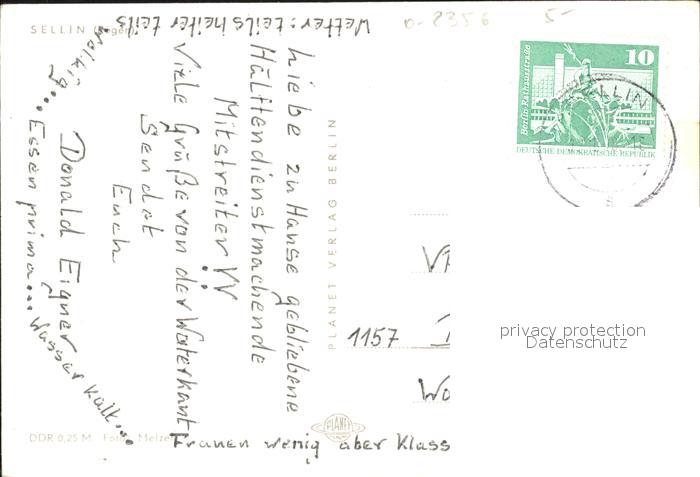 SELLIN (Rügen)
Wetter: teils heiter teils
wolkig...
Essen prima... Wasser kalt...
Frauen wenig aber Klass
Liebe zu Hause gebliebene
Hälftendienstmachende
Mitstreiter!!
Viele Grüße von der Waterkant
Sendet
Euch
Donald Eigner
PLANET VERLAG BERLIN
PLANET
DDR 0,25 M Foto: Melze
0-2356
5-
10
Berlin-Rathausstraße
DEUTSCHE DEMOKRATISCHE REPUBLIK
SELLIN
a
1157
privacy protection
Datenschutz